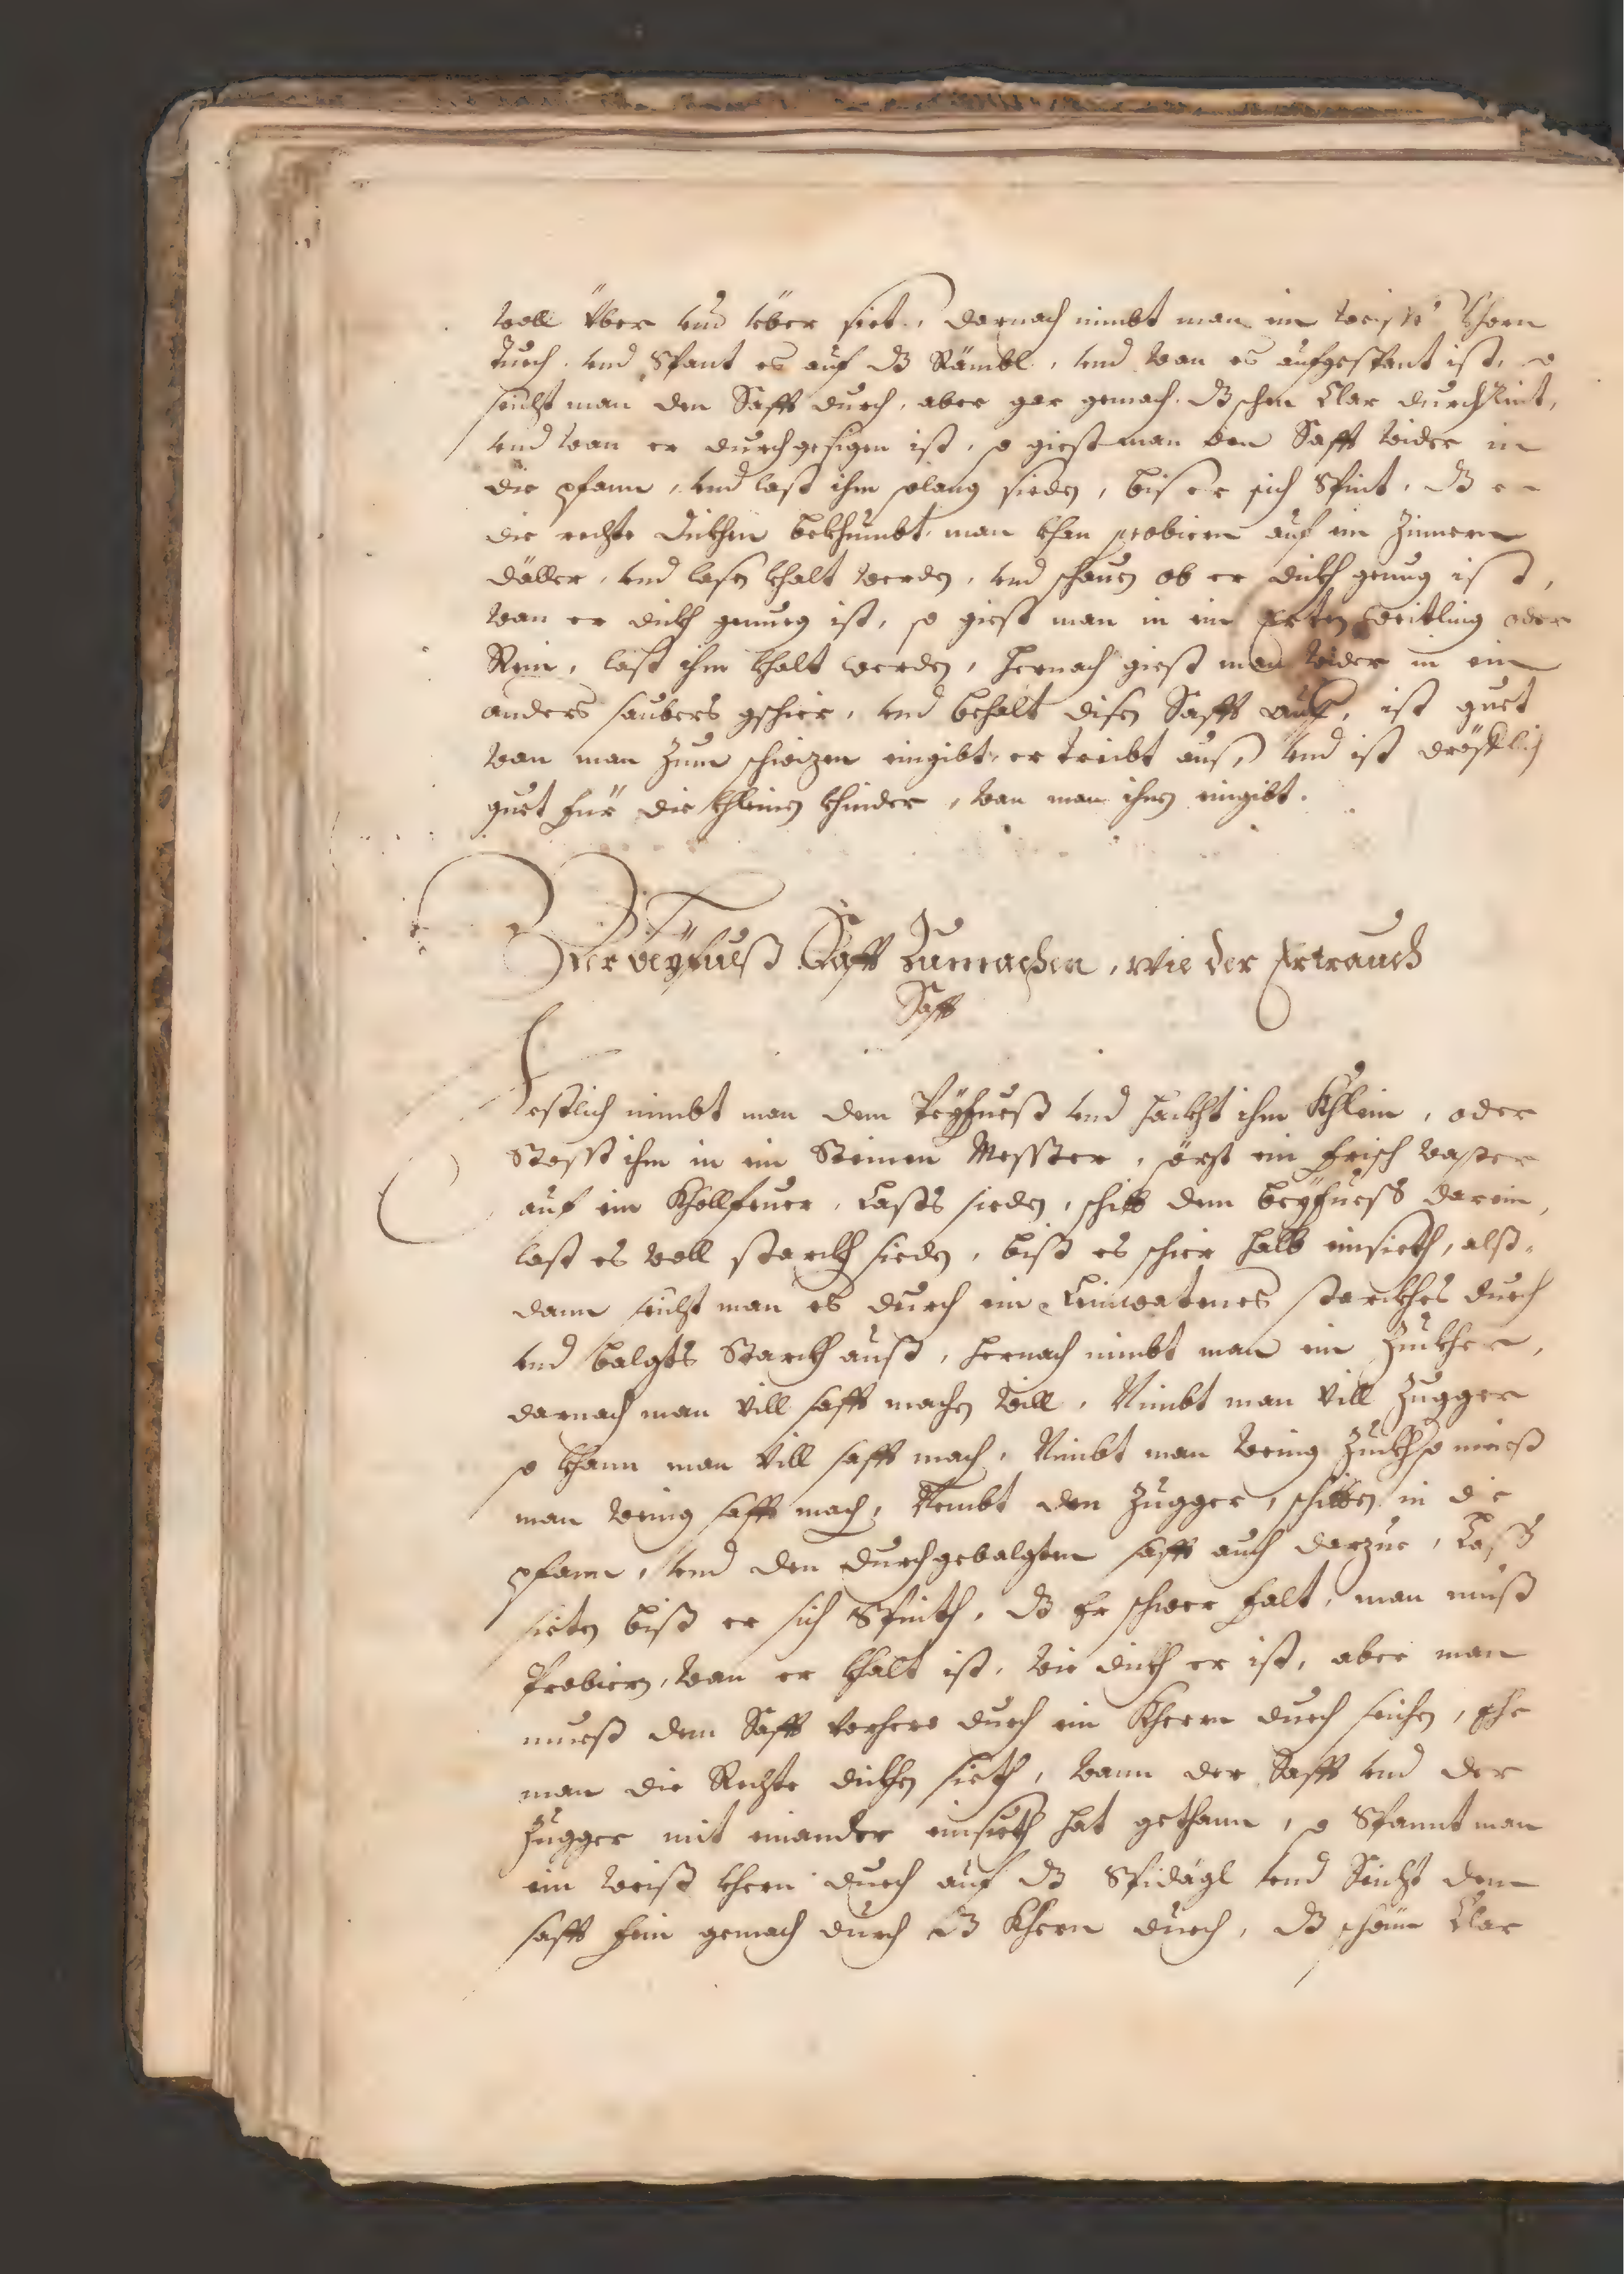 woll über vnd über siet, darnach nimbt man ein weiss khern
tuech, vnd Spant es auf dz Rämbl, vnd wan es aufgespant ist, so
seicht man den Safft durch, aber gar gemach, dz schen Clar durchRint,
vnd wan er durchgesigen ist, so giest man den Safft wider in
die pfann, vnd last ihm solang sieden, bis er sich Spint, dz er
die rechte dickhen bekhumbt, man khan probiern auf ein Zinnern
däller, vnd lasen khalt werden, vnd schauen ob er dickh genug ist,
wan er dickh genueg ist, so giest man in ein Erten weitling oder
Rein, last ihm khalt werden, hernach giest man wider in ein
anders saubers gschier, vnd behalt disen Safft auf, ist guet
wan man zum schwizen eingibt, er treibt aus, vnd ist dröstlich
guet für die khleinen khinder, wan man ihnen eingibt.
Der beyfueß Safft Zumachen, wie der Ertrauch
Safft
Erstlich nimbt man dem Peyfueß vnd hackht ihm Khlein, oder
Stosst ihm in ein Steinen Messter, sözt ein frisch wasser
auf ein Khollfeuer, Lasts sieden, schitt dem beyfuess darein,
last es woll starckh sieden, biß es schier halb einsieth, alß-
dann seicht man es durch ein Leinwatenes starckhes duech
vnd balgts Starckh auß, hernach nimbt man ein Zuckher,
darnach man vill safft machen will, Nimbt man vill Zugger
so khann man vill safft mach, Nimbt man wenig Zuckh so mueß
man wenig safft mach, Nembt den Zugger, schitten in die
pfann, vnd den durchgebalgten safft auch darzue, Laß
sieten biß er sich Spinth, dz Er schwer falt, man muß
Probiern, wan er khalt ist, wie dickh er ist, aber man
mueß dem Safft vorhero durch ein Khern duech seichen, ehe
man die Rechte dickhen sieth, wann der Safft vnd der
Zugger mit einander einsieth hat gethann, so Spannt man
ein weiß khern duech auf dz Spidägl vnd Seicht dem
safft fein gemach durch dz Khern duech, dz schön Clar